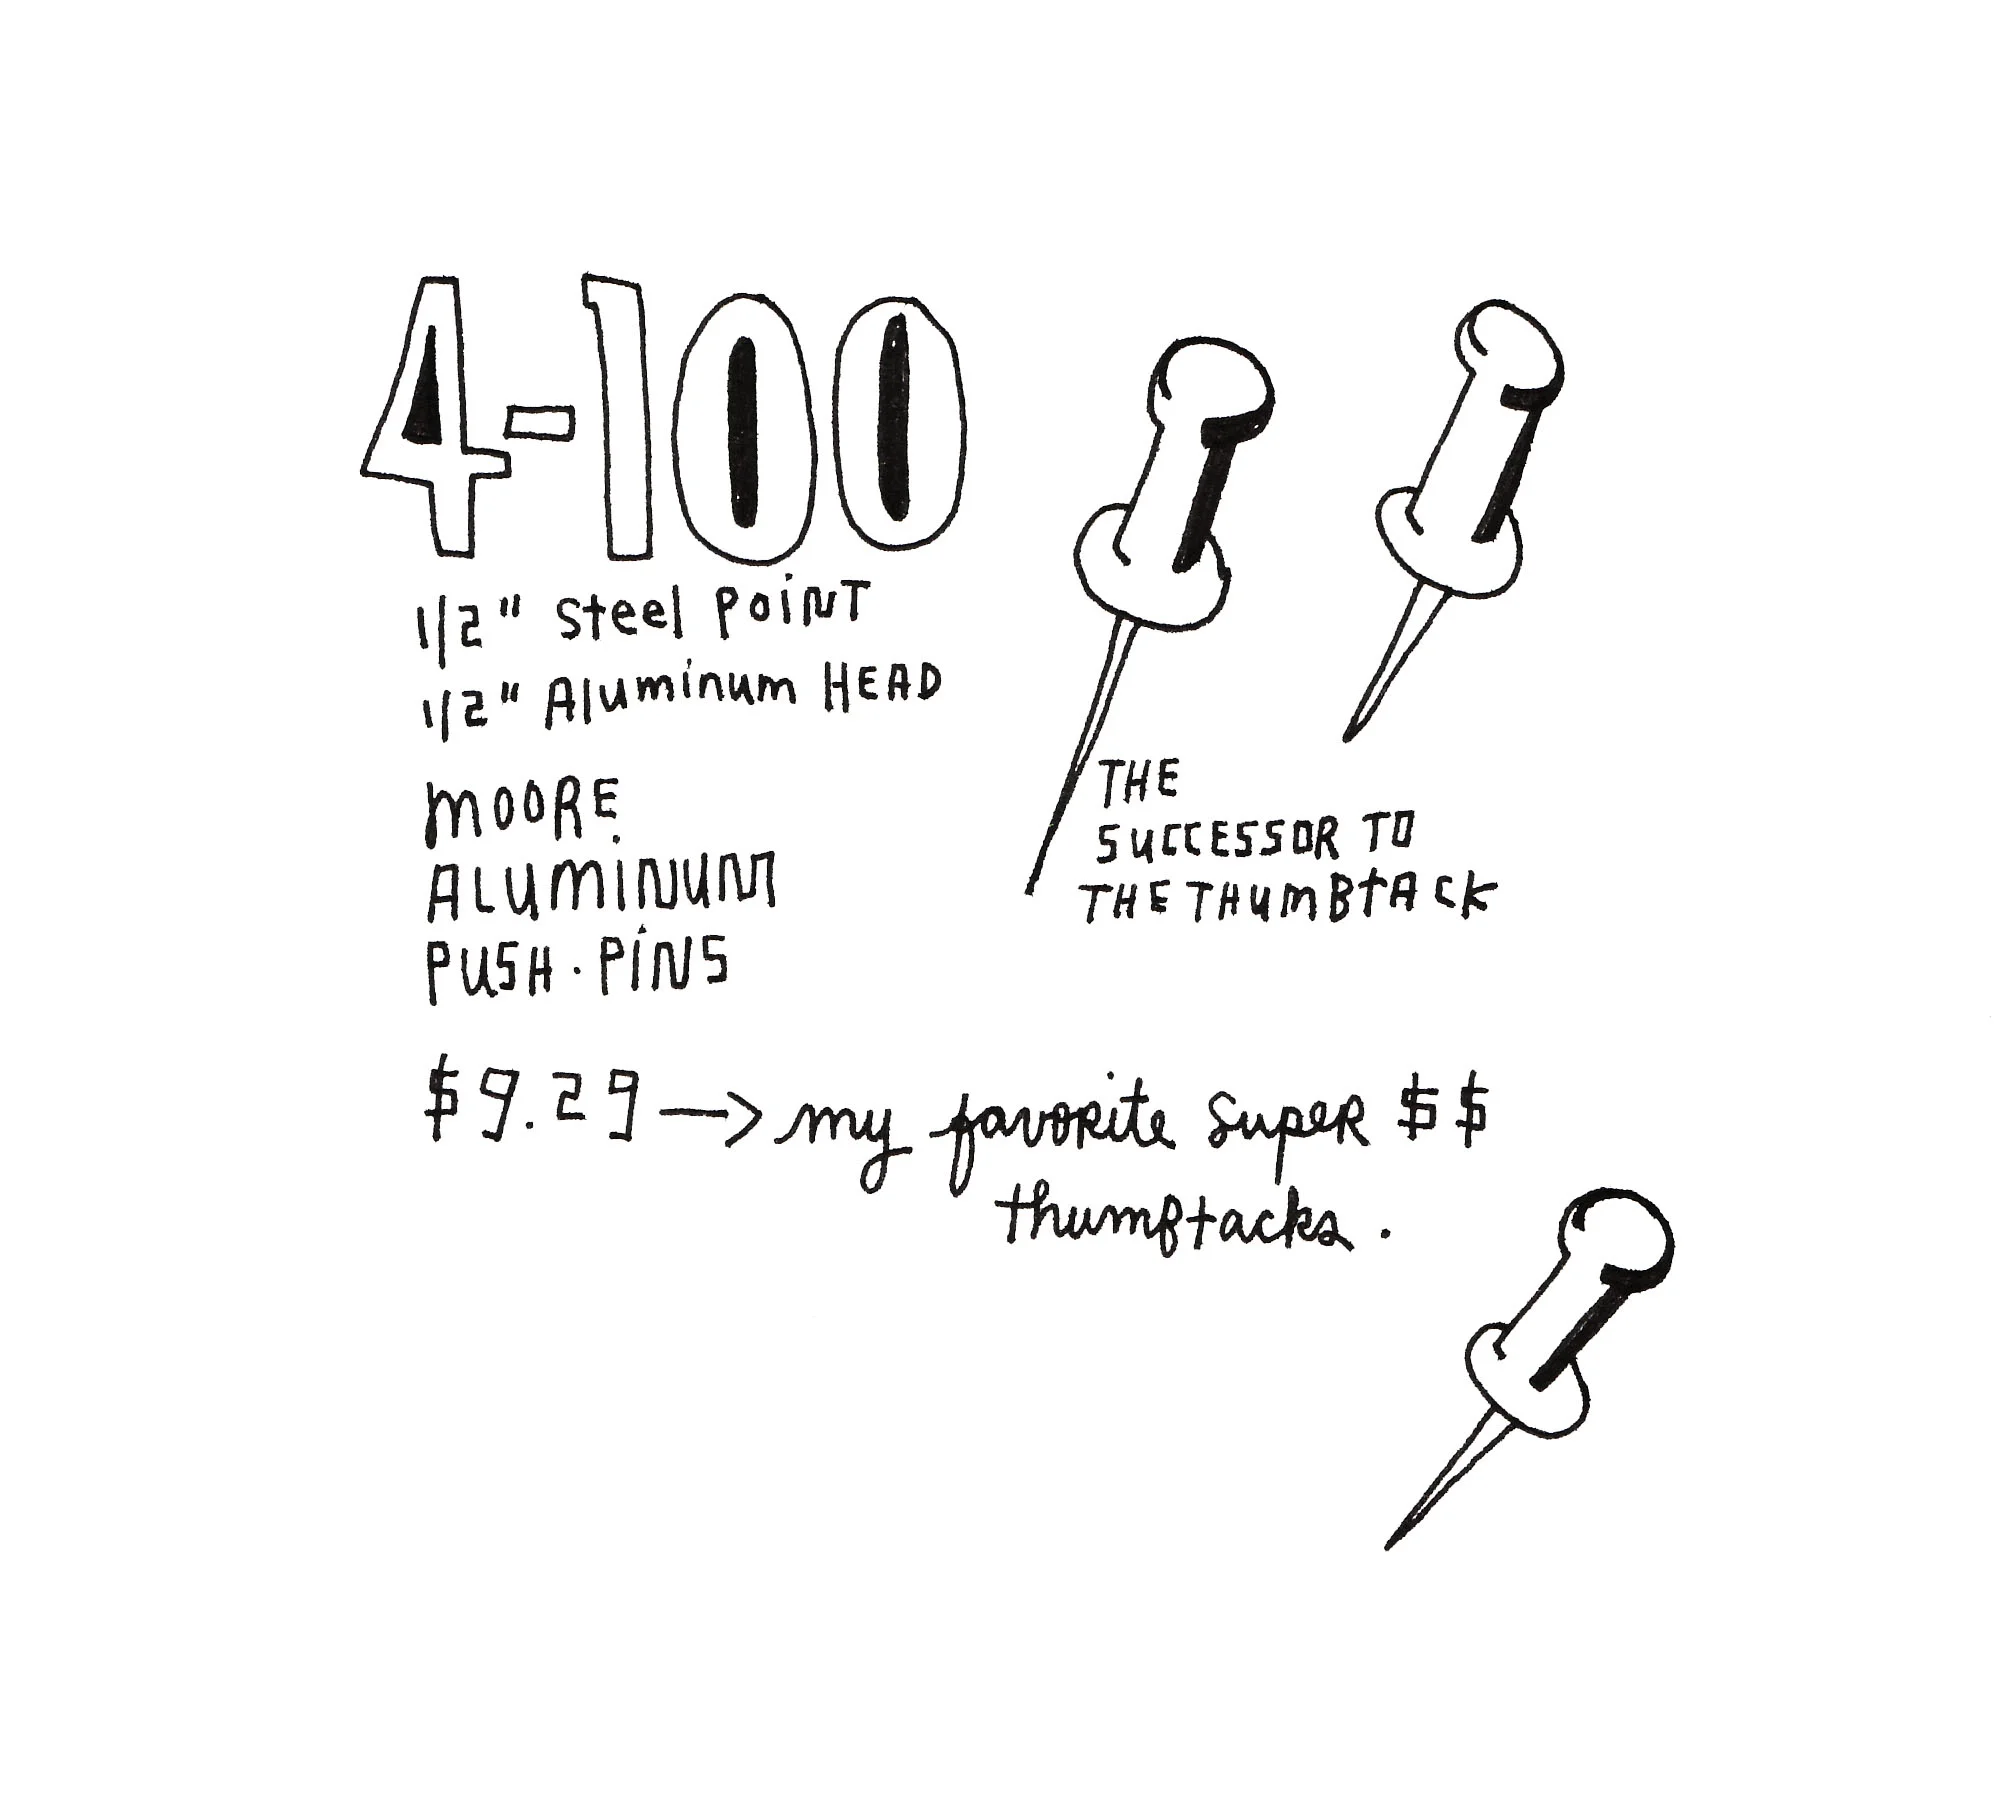 4-100
1/2" Steel POiNT
1/2" Aluminum HEAD
MOORE
ALUMiNUM
PUSH·PiNS
THE
SUCCESSOR TO
THE THUMBtACK
$9.29 —> my favorite Super $$
thumbtacks.